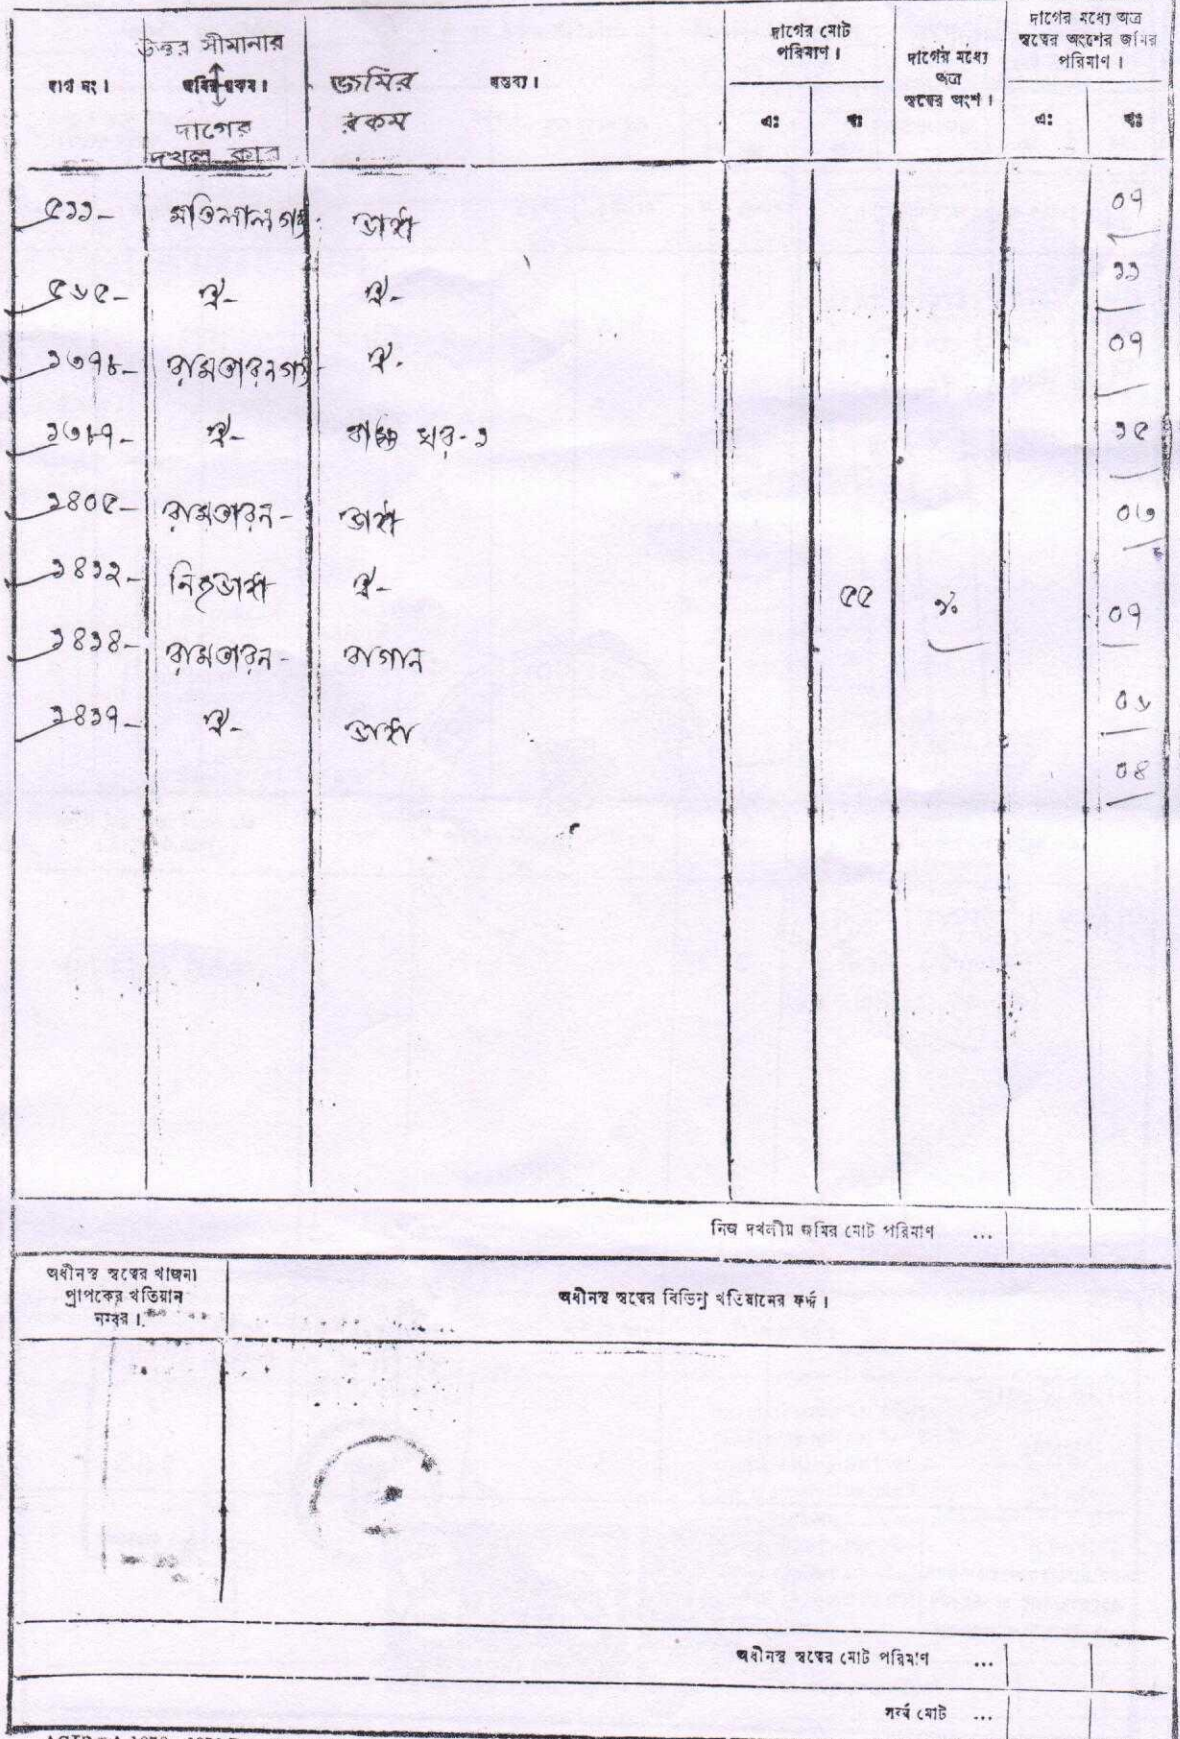 দাগ নং।
উত্তর সীমানার
দাগের
দখল কার
জমির
রকম
মন্তব্য।
দাগের মোট
পরিমাণ।
এঃ
শঃ
দাগের মধ্যে
অত্র
স্বত্বের অংশ।
দাগের মধ্যে অত্র
স্বত্বের অংশের জমির
পরিমাণ।
এঃ
শঃ
৫১১- মতিলাল গং ডাঙ্গা ০৭
৫৬৫- ঐ- ঐ- ১১
১৩৭৮- রামতারন গং ঐ- ০৭
১৩৮৭- ঐ- বাস্তু ঘর-১ ১৫
১৪০৫- রামতারন- ডাঙ্গা ০৩
১৪১২- ঐ- ৫৫ ৵০ ০৭
১৪১৪- রামতারন- বাগান ০৬
১৪১৭- ঐ- ডাঙ্গা ০৪
নিজ দখলীয় জমির মোট পরিমাণ ...
অধীনস্থ স্বত্বের খাজনা
প্রাপকের খতিয়ান
নম্বর।
অধীনস্থ স্বত্বের বিভিন্ন খতিয়ানের ফর্দ্দ।
অধীনস্থ স্বত্বের মোট পরিমাণ ...
সর্ব্ব মোট ...